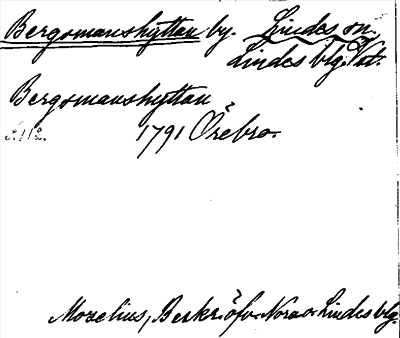 Bergsmanshyttan by. Lindes sn.
Lindes blg. Vst.
Bergsmanshyttan
1791 Örebro.
Mozelius, Beskr. öfv. Nora o. Lindes blg.